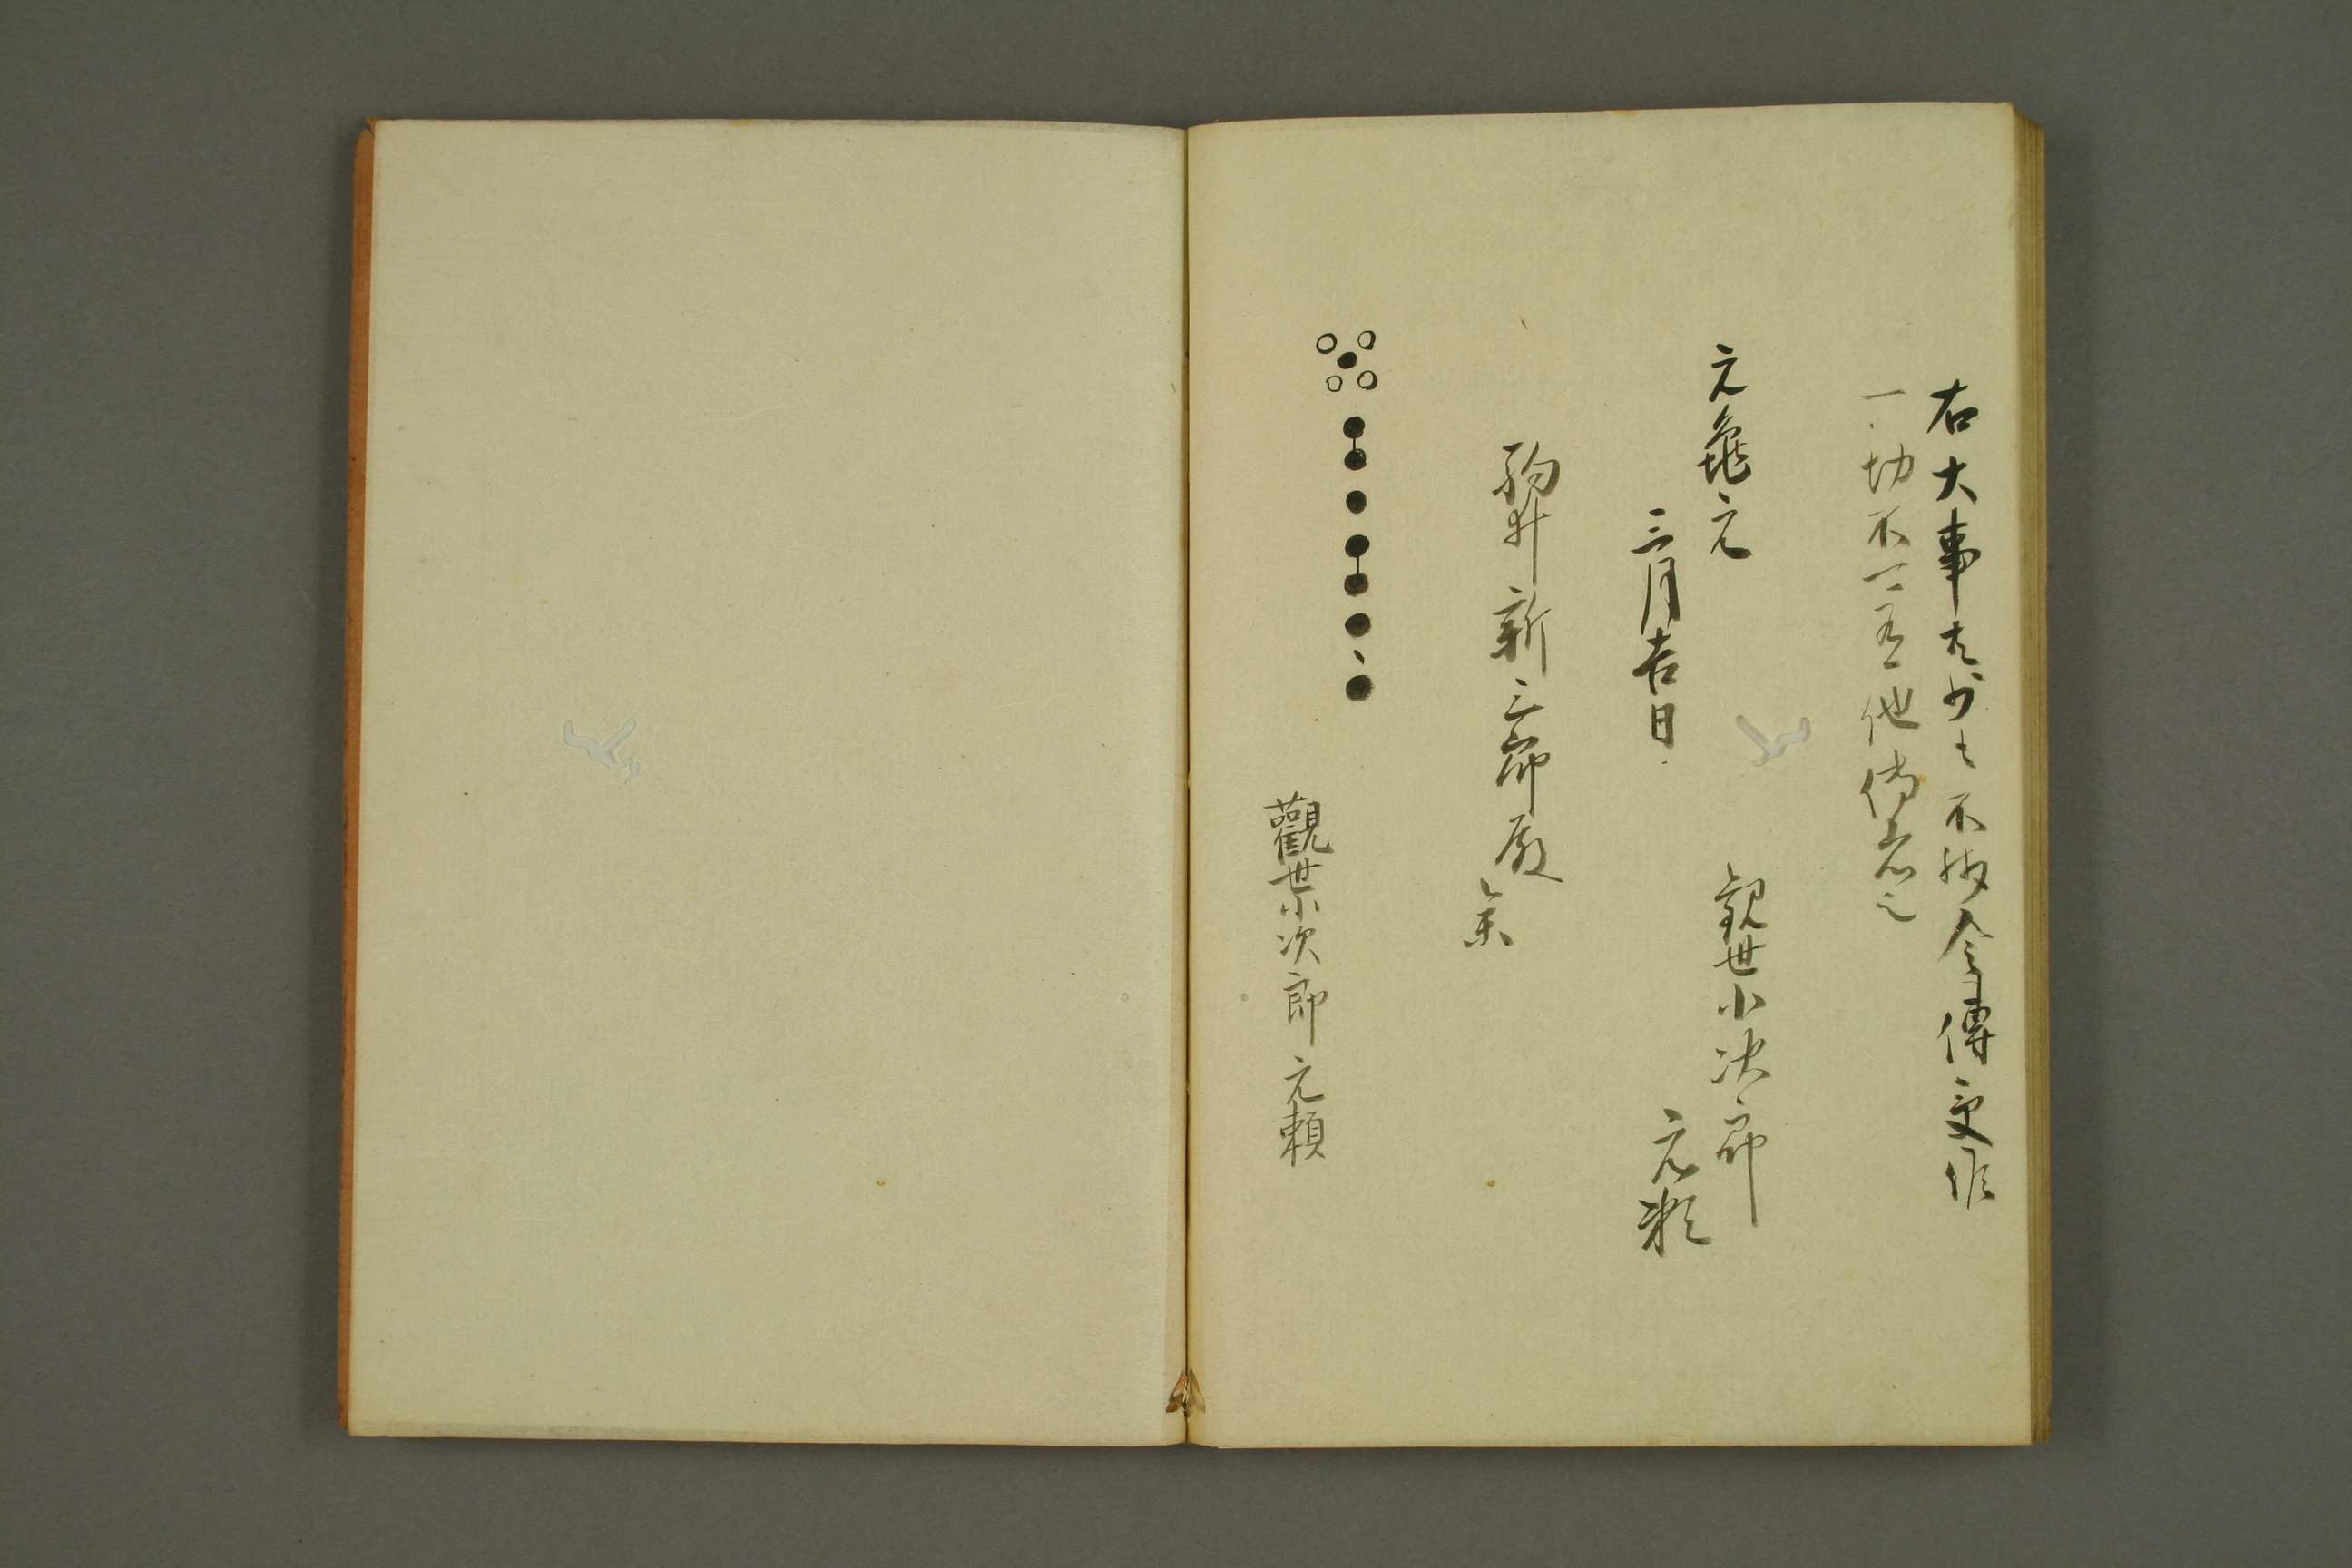 右大事共少も不残令傳受作
一切不可有他傳者也
元龜元
三月吉日
観世小次郎
元頼
駒井新三郎殿
参
觀世小次郎元頼